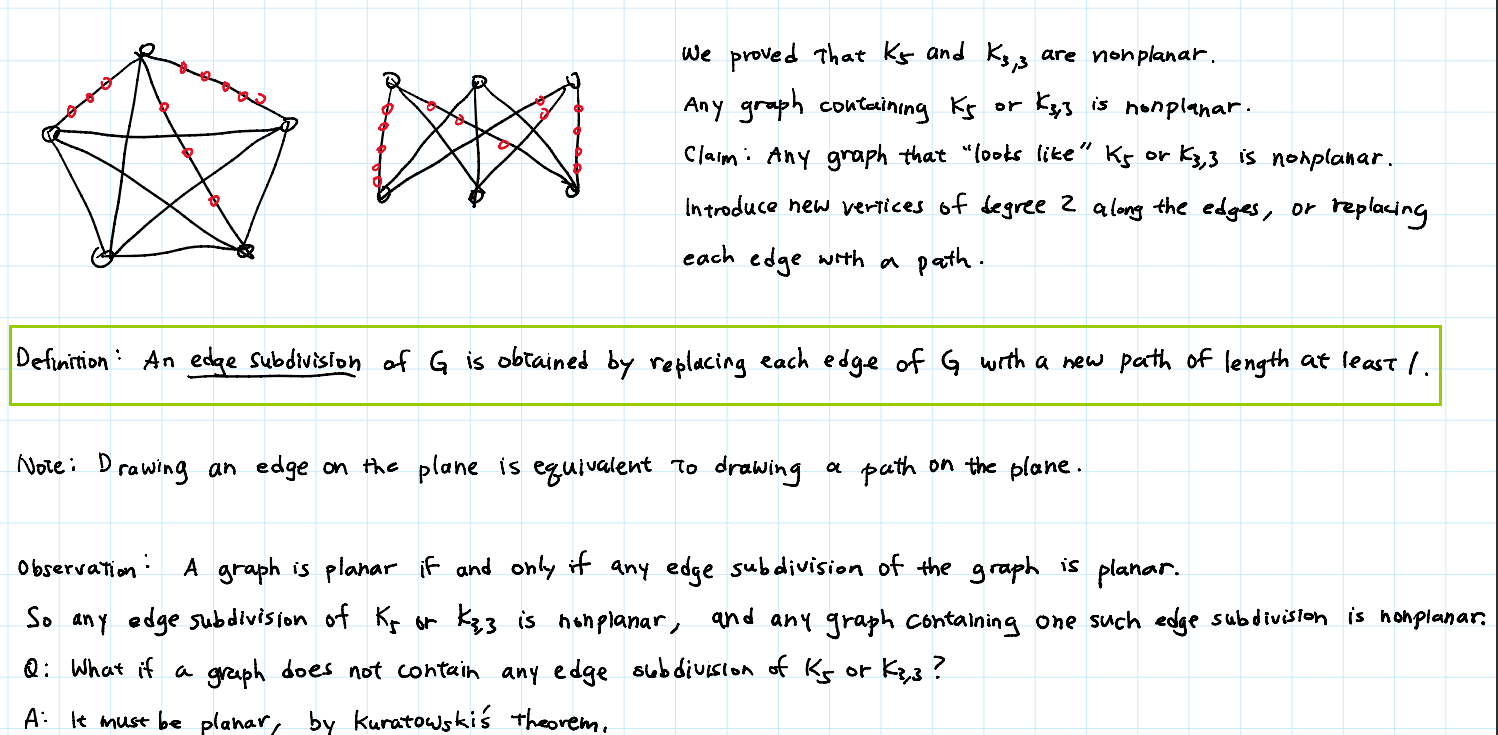 We proved that K5 and K3,3 are nonplanar.
Any graph containing K5 or K3,3 is nonplanar.
Claim: Any graph that "looks like" K5 or K3,3 is nonplanar.
Introduce new vertices of degree 2 along the edges, or replacing
each edge with a path.
Definition: An edge subdivision of G is obtained by replacing each edge of G with a new path of length at least 1.
Note: Drawing an edge on the plane is equivalent to drawing a path on the plane.
Observation: A graph is planar if and only if any edge subdivision of the graph is planar.
So any edge subdivision of K5 or K3,3 is nonplanar, and any graph containing one such edge subdivision is nonplanar.
Q: What if a graph does not contain any edge subdivision of K5 or K3,3?
A: It must be planar, by Kuratowski's theorem.